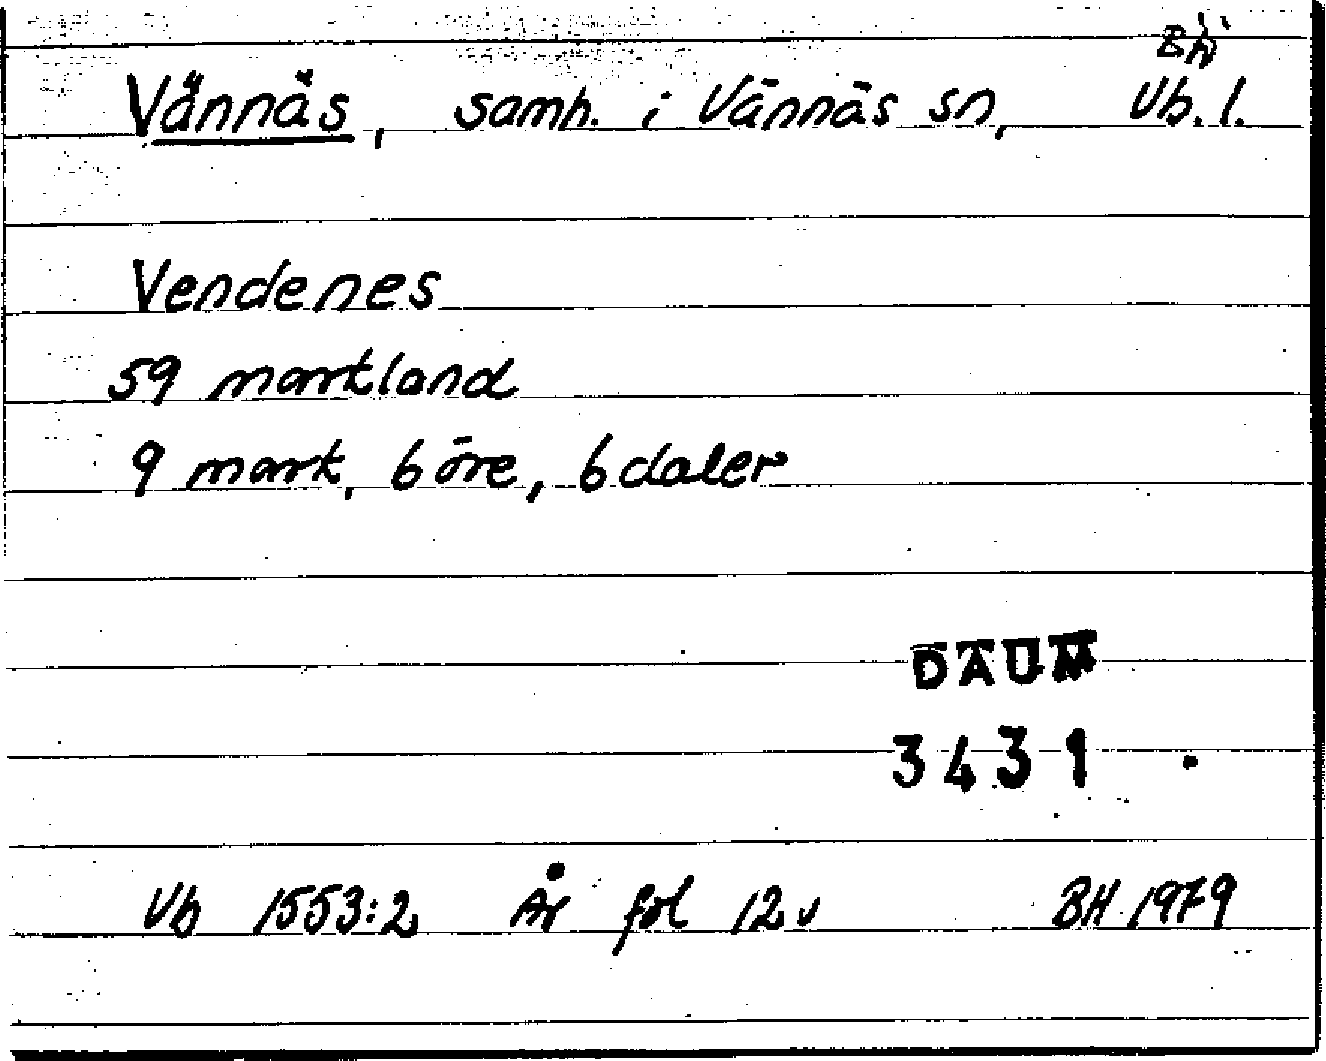 Bhi
Vännäs, samh. i Vännäs sn, Vb. l.
Vendenes
59 markland
9 mark, 6 öre, 6 daler
DAUM
3431
Vb 1553:2 År fol 12 v BH 1979